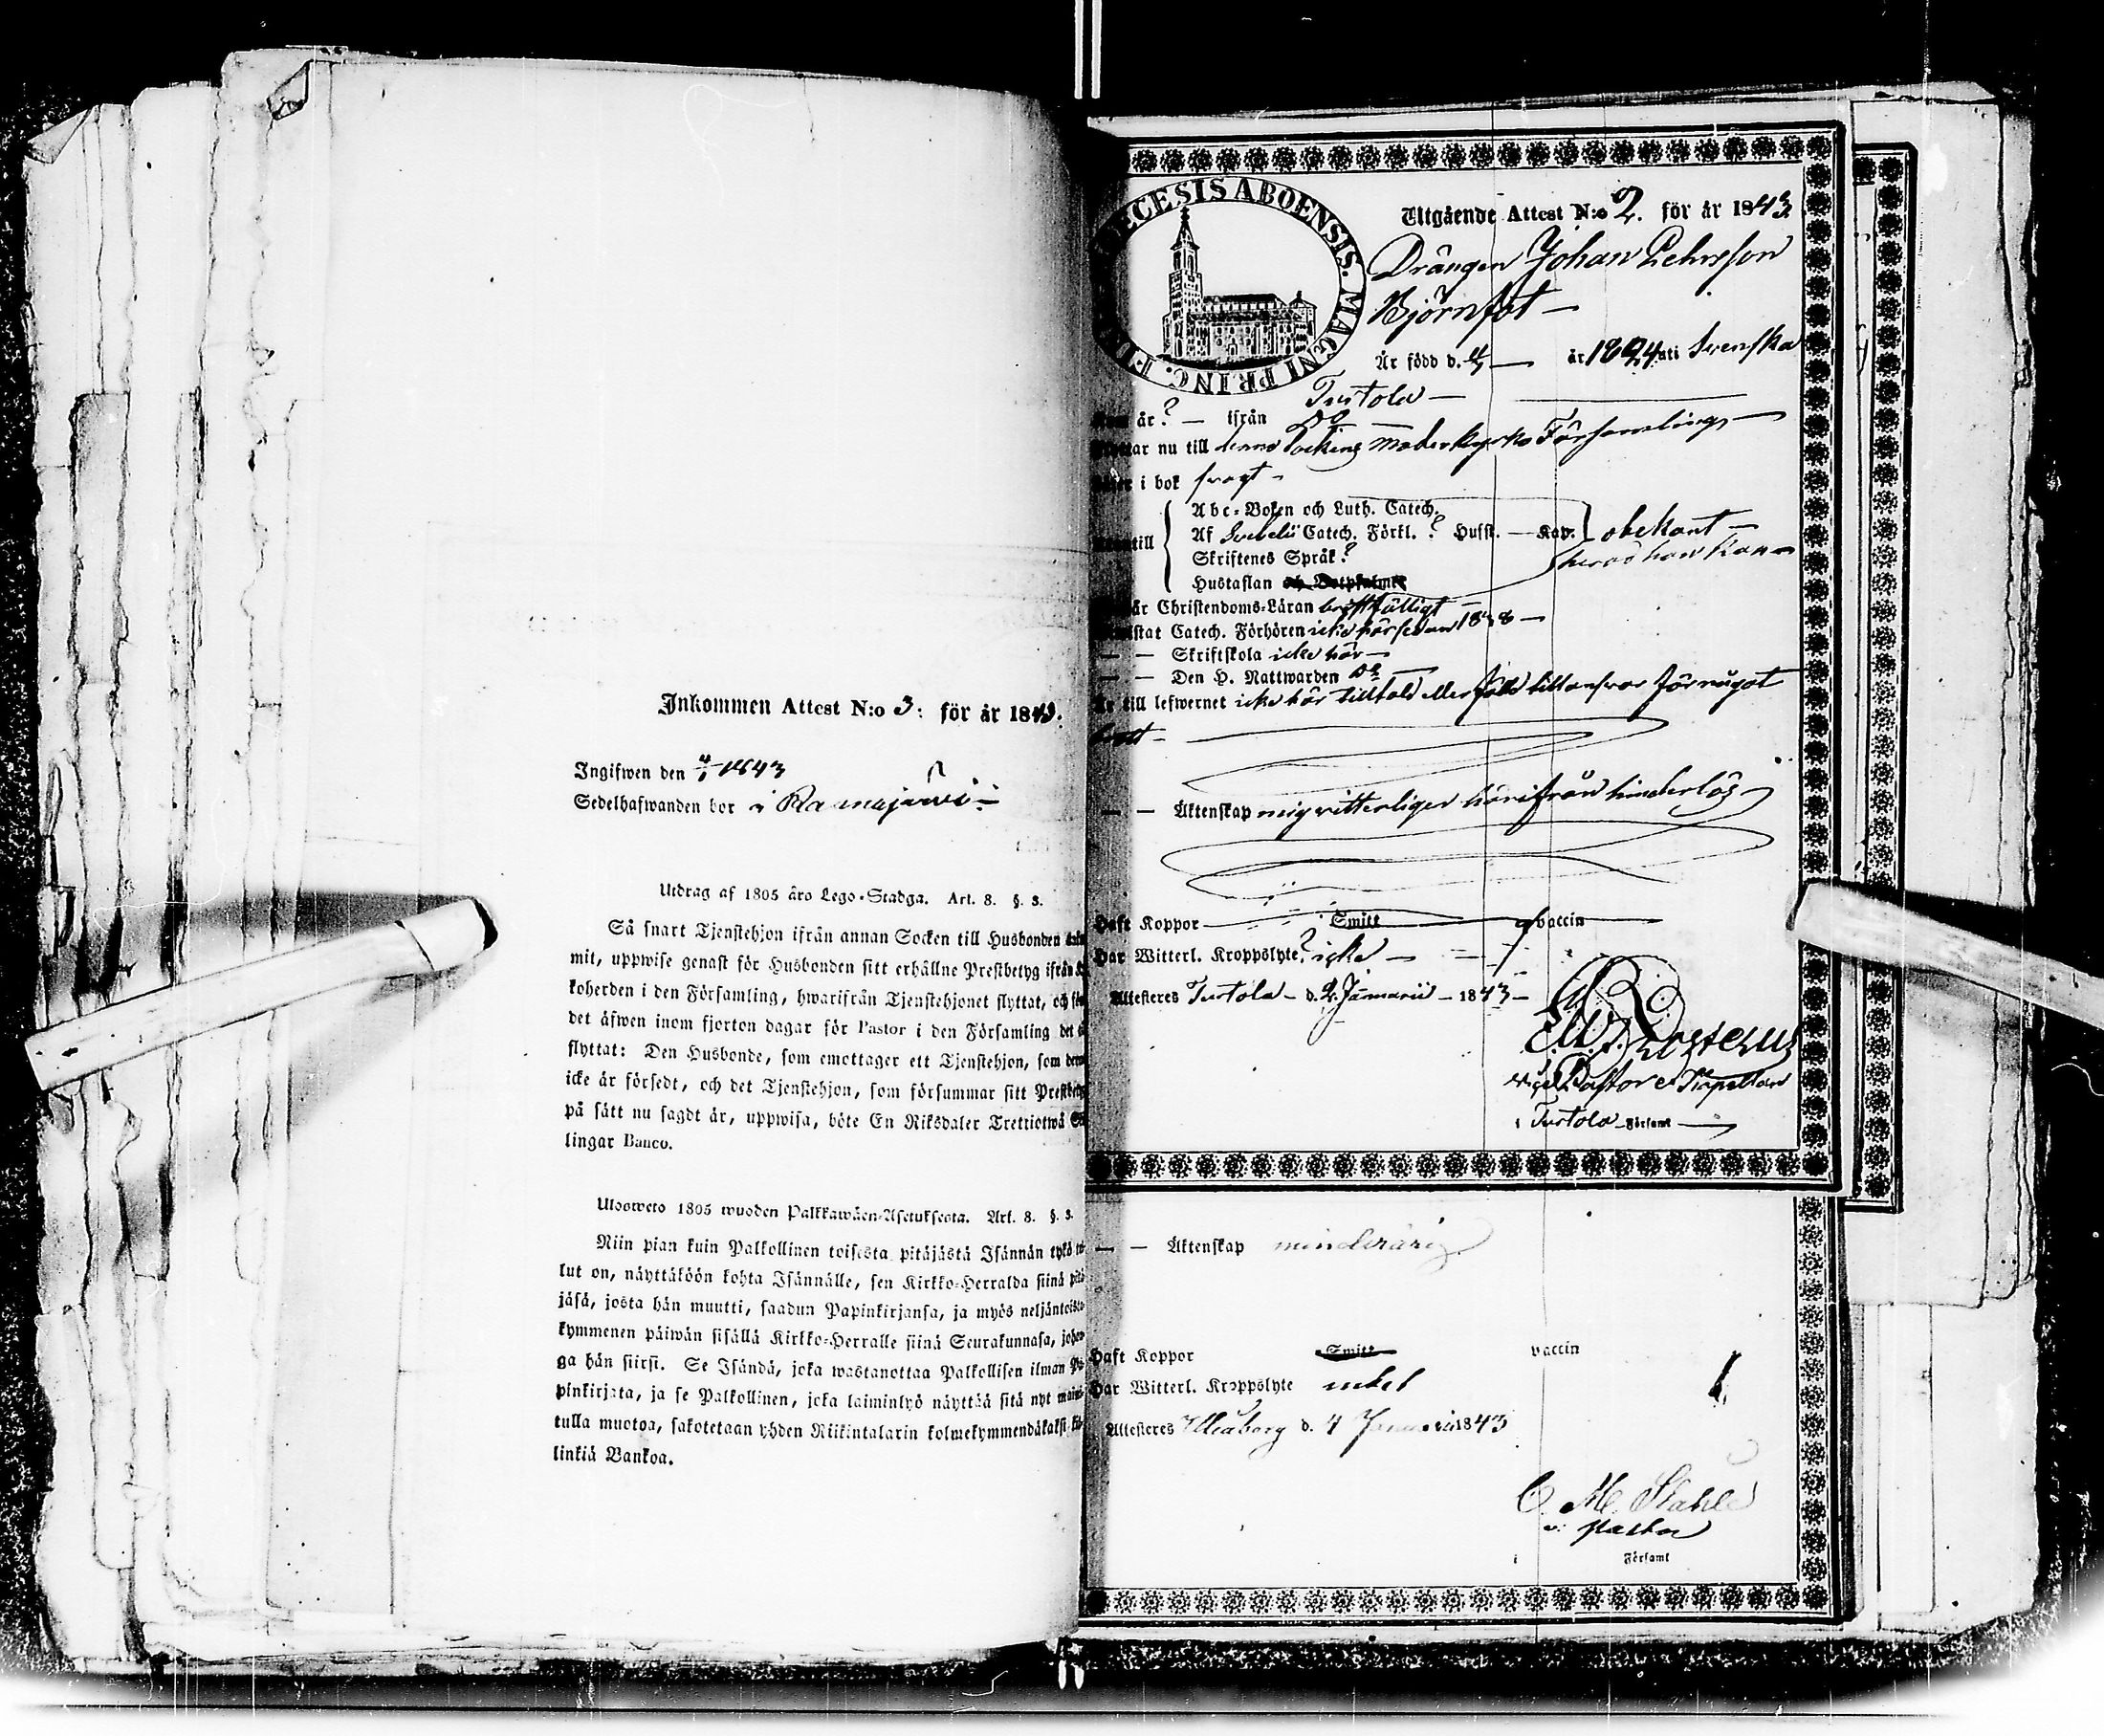 Inkommen Attest N:o 3: för år 1843.
Ingifwen den 4/1 1843
Sedelhafwanden bor i
Utdrag af 1805 års Lego-Stadga. Art. 8. §. 3.
Så snart Tjenstehjon ifrån annan Socken till Husbonden
mit, uppwise genast för Husbonden sitt erhållne Prestbetyg ifrån
koherden i den Församling, hwarifrån Tjenstehjonet flyttat, och
det äfwen inom fjorton dagar för Pastor i den Församling det
flyttat: Den Husbonde, som emottager ett Tjenstehjon, som
icke är försedt, och det Tjenstehjon, som försummar sitt Prestbetyg
på sätt nu sagdt är, uppwisa, böte En Riksdaler Trettiotwå
lingar Banco.
Ulosweto 1805 wuoden Palkkawäen-Asetuksesta. Art. 8. §. 3.
Niin pian kuin Palkollinen toisesta pitäjästä Isännän tykö
lut on, näyttäköön kohta Isännälle, sen Kirkko-Herralda siinä pitä
jäsä, josta hän muutti, saadun Papinkirjansa, ja myös neljäntoista
kymmenen päiwän sisällä Kirkko-Herralle siinä Seurakunnasa, johon
ga hän siirsi. Se Isändä, joka wastanottaa Palkollisen ilman Pa
pinkirjata, ja se Palkollinen, joka laiminlyö näyttää sitä nyt maini
tulla muotoa, sakotetaan yhden Riikintalarin kolmekymmendäkaksi kil
linkiä Bankoa.
DIOECESIS ABOENSIS. MAGNI PRINC. FINL.
Utgående Attest N:o 2. för år 1843.
Drängen Johan Pehrsson
Björnfot
År född d. år 1824 uti Svenska
Turtola
Kom år? — ifrån Do
Flyttar nu till denna Sockens Moderkyrko Församling
Läser i bok svagt
Abc-Boken och Luth. Catech.
Utantill Af Svebelii Catech. Förkl.? Hufst. — Kap. obekant
Skriftenes Språk? hvad han kan
Hustaflan och Botpsalmer
Christendoms-Läran bristfälligt
Catech. Förhören icke här sedan 1838
— — Skriftskola icke här
— — Den H. Nattwarden Do
Är till lefwernet icke här tilltald eller fäld till ansvar för något
brott
— — Äktenskap mig vitterligen härifrån hinderlös
Haft Koppor Smitt vaccin
Har Witterl. Kroppslyte? icke
Attesteres Turtola d. 2. Januarii 1843
Vice Pastor et Kapellan
i Turtola Församl
— — Äktenskap minderårig
Haft Koppor Smitt vaccin
Har Witterl. Kroppslyte intet
Attesteres Uleåborg d. 4 Januarii 1843
C. M. Stahle
v. Pastor
i Församl